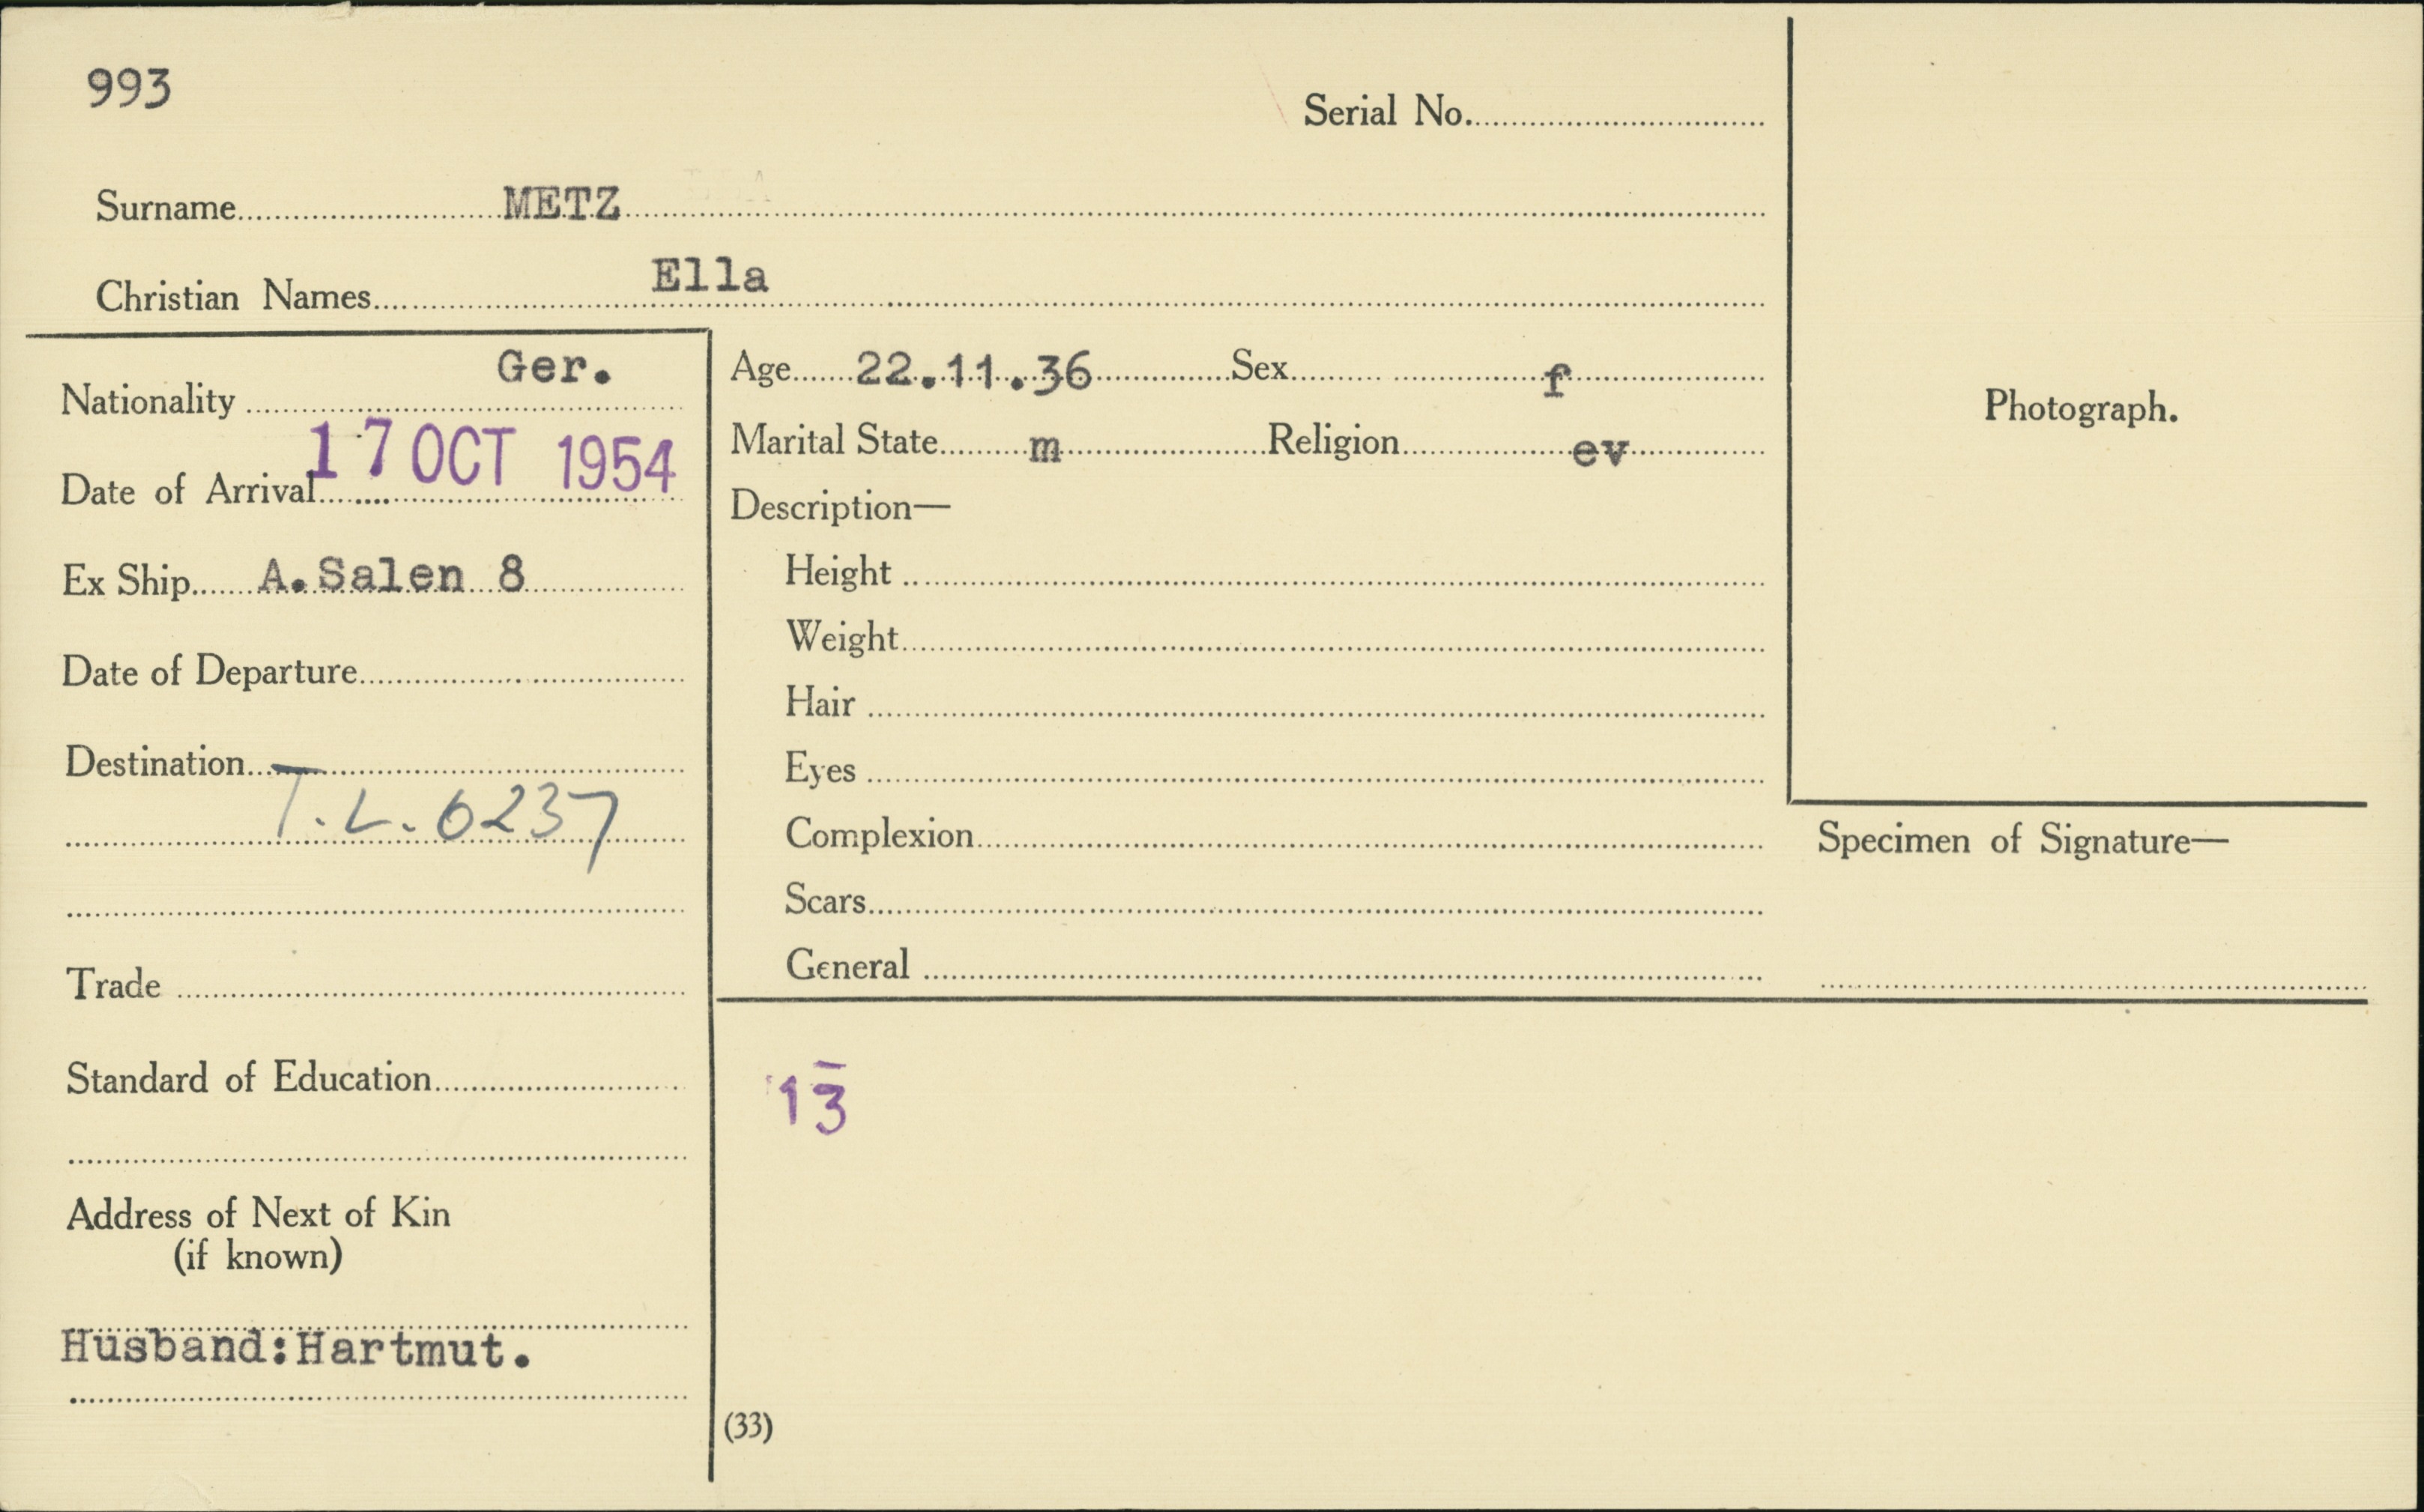 993
Serial No.
Surname METZ
Christian Names Ella
Nationality Ger.
Date of Arrival 17 OCT 1954
Ex Ship A.Salen 8
Date of Departure
Destination
T.L. 6237
Trade
Standard of Education
Address of Next of Kin
(if known)
Husband:Hartmut.
Age 22.11.36 Sex f
Marital State m Religion ev
Description—
Height
Weight
Hair
Eyes
Complexion
Scars
General
Photograph.
Specimen of Signature—
13
(33)